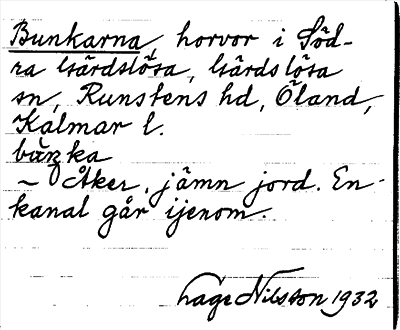 Bunkarna, horvor i Söd-
ra Gärdslösa, Gärdslösa
sn, Runstens hd, Öland,
Kalmar l.
båŋka
~ Åker, jämn jord. En
kanal går ijenom.
Lage Nilsson 1932